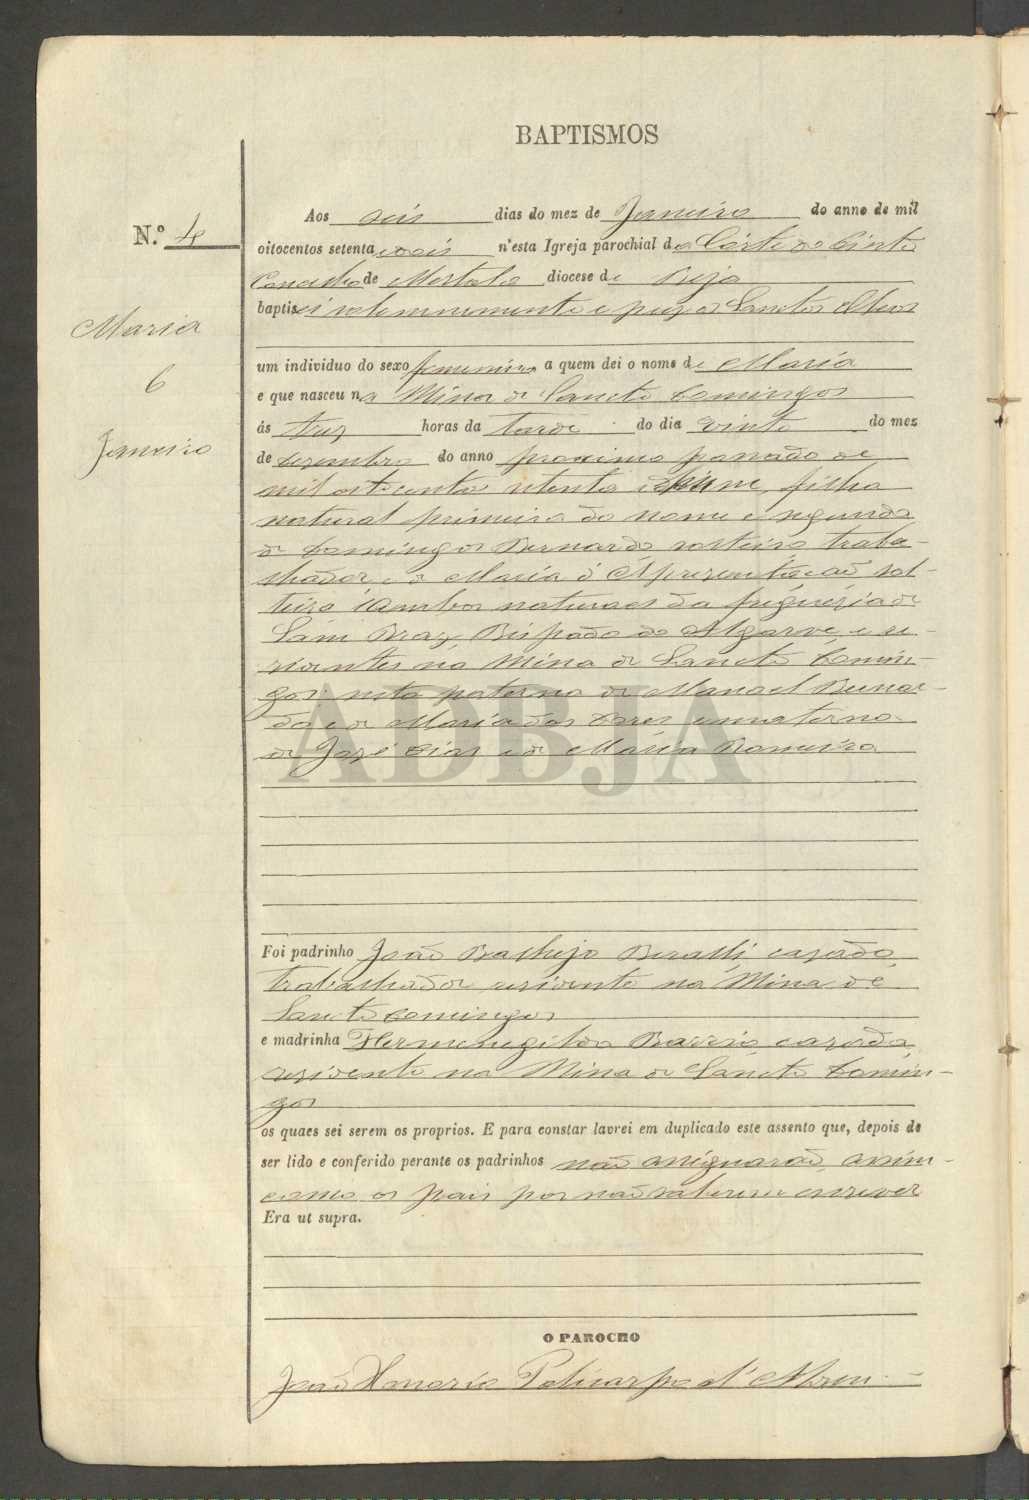 BAPTISMOS
Aos seis dias do mez de Janeiro do anno de mil
N.º 4
oitocentos setenta e dois n'esta Igreja parochial de Córte do Pinto
Concelho de Mertola diocese de Beja
baptisei solemnemente e puz os Sanctos Oleos
Maria
6
Janeiro
um individuo do sexo femenino a quem dei o nome de Maria
e que nasceu na Mina de Sancto Domingos
ás trez horas da tarde do dia vinte do mez
de Dezembro do anno proximo passado de
mil oitocentos setenta e hum, filha
natural primeira do nome e segunda
de Domingos Bernardo solteiro traba-
lhador e de Maria d'Aprezentação sol-
teira ambos naturaes da freguezia de
Sam Braz Bispado do Algarve, e re-
zidentes na Mina de Sancto Domin-
gos; neta paterna de Manoel Bernar-
do e de Maria das Dores e materna
de Jozé Dias e de Maria Romeira
ADBJA
Foi padrinho João cazado
trabalhador rezidente na Mina de
Sancto Domingos
e madrinha Hermenegilda cazada
rezidente na Mina de Sancto Domin-
gos
os quaes sei serem os proprios. E para constar lavrei em duplicado este assento que, depois de
ser lido e conferido perante os padrinhos não assignarão, assim
como os pais por não saberem escrever
Era ut supra.
O PAROCHO
João Honorio Policarpo d'